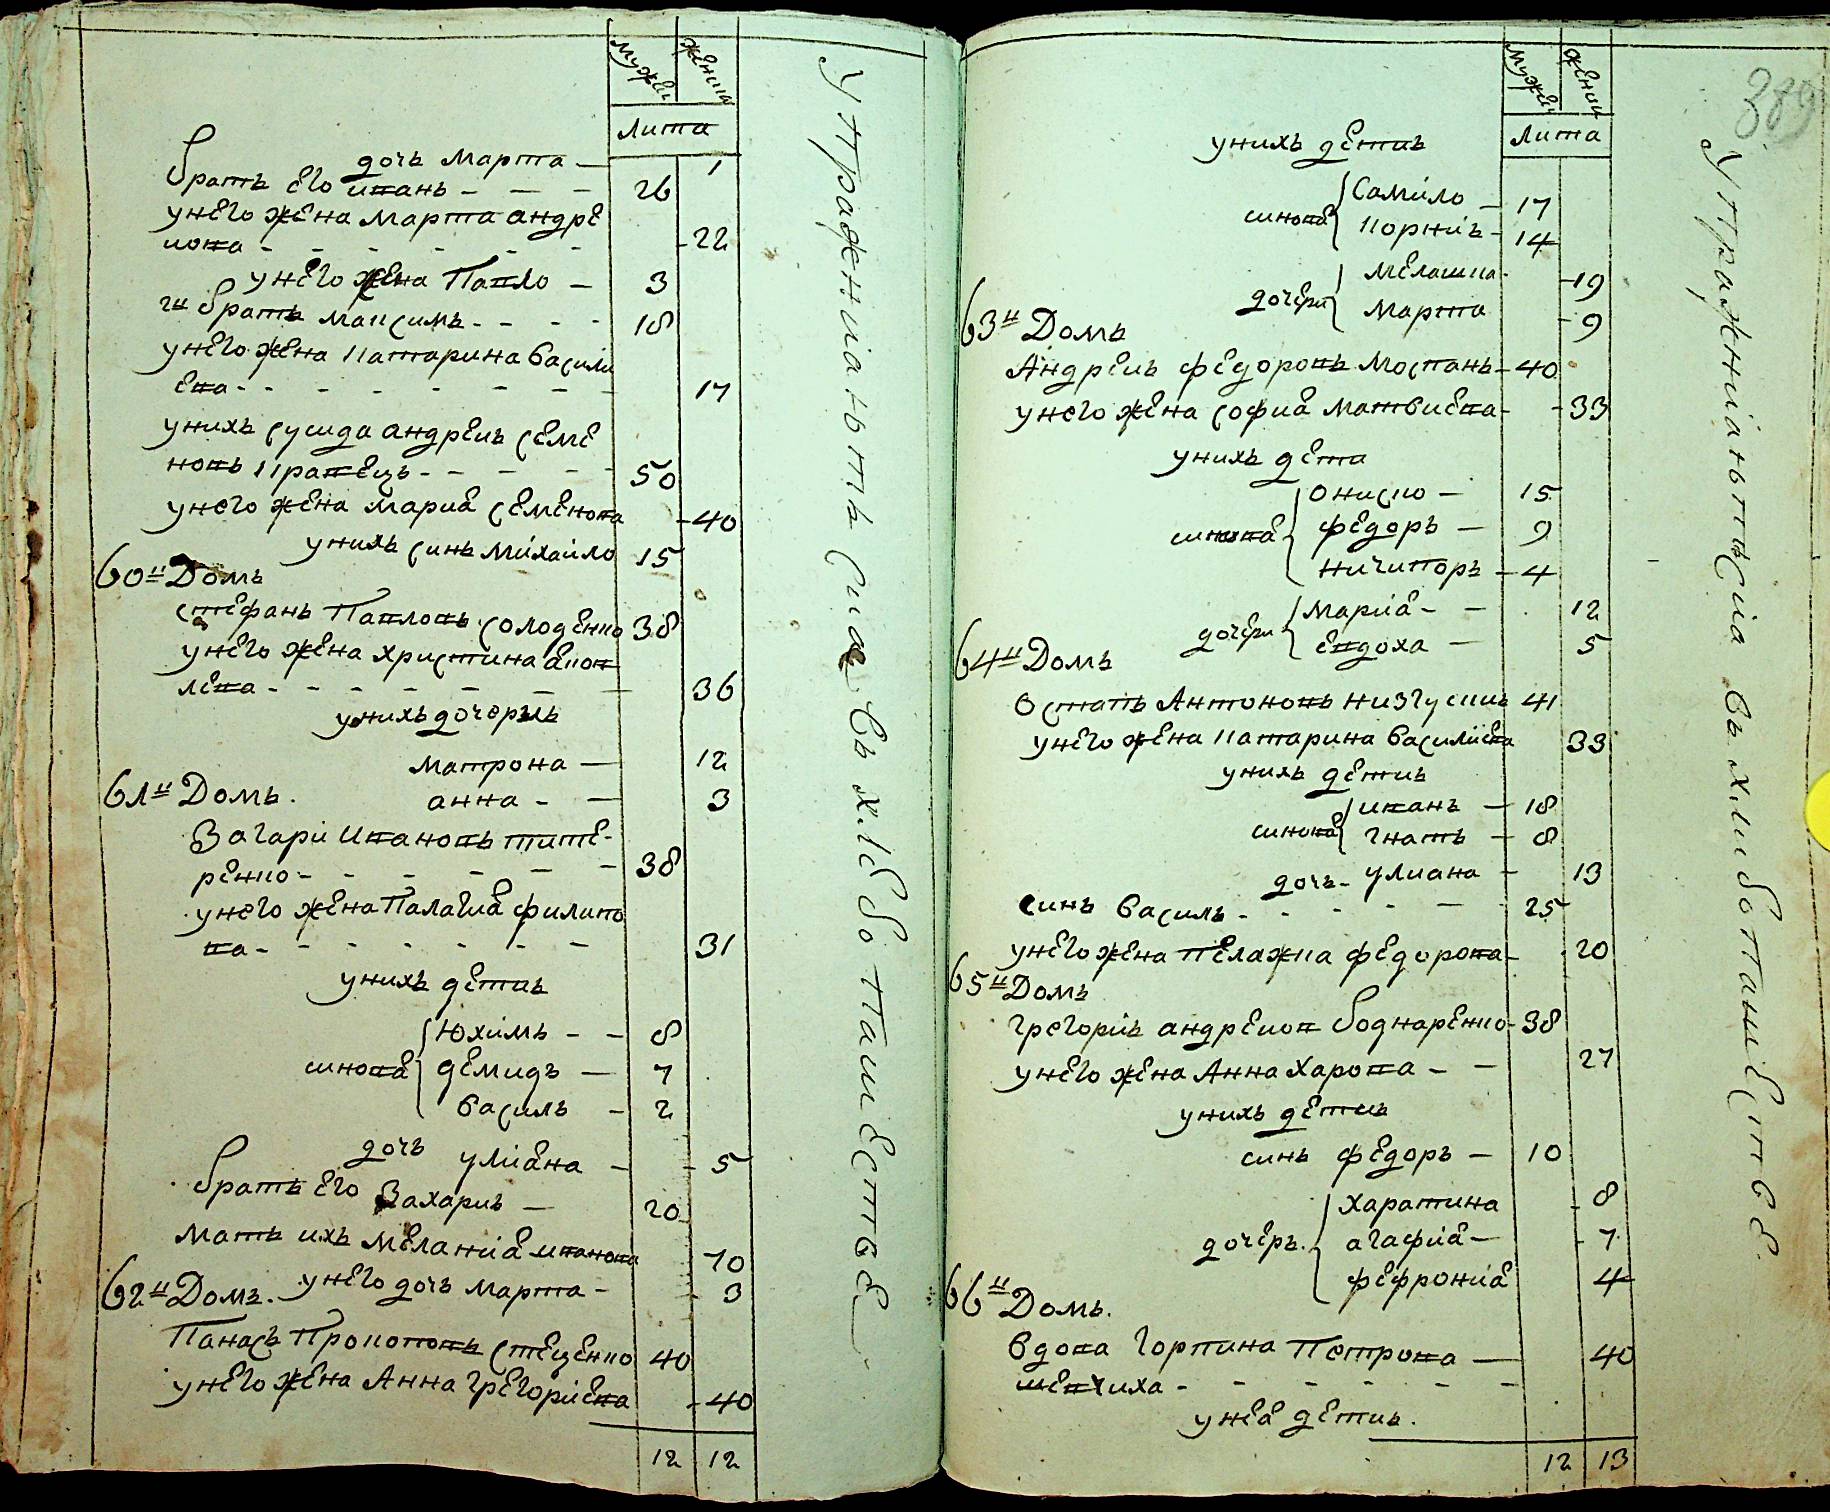 мужеи женищ
лита
дочь марта — 1
братъ его иванъ - - - 26
унего жена марта андре
иова - - - - - - 22
унего жена Павло — 3
2й братъ максимъ - - - - 18
унего жена катарина васили
ева - - - - - - - 17
унихъ сусида андреиъ семе
новъ кравецъ - - - - - 50
унего жена мариа семенова - 40
унихъ синъ михаило 15
60й Домъ
стефанъ Павловъ солоденко 38
унего жена христина аков
лева - - - - - - - 36
унихъ дочеръ
матрона — 12
анна - — 3
61й Домъ.
Захари ивановъ тите-
ренко - - - - - - 38
унего жена Палагиа филипо
ва - - - - - - - 31
унихъ детиъ
синова
Юхимъ - - 8
демидъ — 7
василь - 2
дочь улиана - - 5
братъ его Захариъ — 20
мать ихъ меланиа иванова 70
унего дочь марта - - 3
62й Домъ.
Панасъ Прокоповъ стеценко 40
унего жена Анна Грегориева - 40
12 12
упражниаютъсиа въ хлібопашестве
мужеи женищ
389
лита
унихъ детиъ
синова
Самиło — 17
корниъ - 14
дочери
мелашка - - 19
марта - 9
63й Домъ
Андреиъ федоровъ моспанъ - 40
унего жена софиа матвиева - - 33
унихъ дети
синова
ониско — 15
федоръ — 9
ничипоръ — 4
дочери
мариа - - 12
евдоха - 5
64й Домъ
Остапъ Антоновъ низгускиъ 41
унего жена катарина василиева 33
унихъ детиъ
синова
иванъ — 18
гнатъ — 8
дочь - улиана - 13
синъ василь - - - - - - 25
унего жена пелажка федорова - 20
65й Домъ
грегориъ андреиов боднаренко - 38
унего жена Анна Харова - - 27
унихъ детиъ
синъ федоръ — 10
дочеръ.
харатина - 8
агафиа — - 7
фефрониа 4
66й Домъ.
вдова горпина Петрова — 40
шевчиха - - - - - - -
унеа детиъ.
12 13
упражниаютъсиа въ хлибопашестве